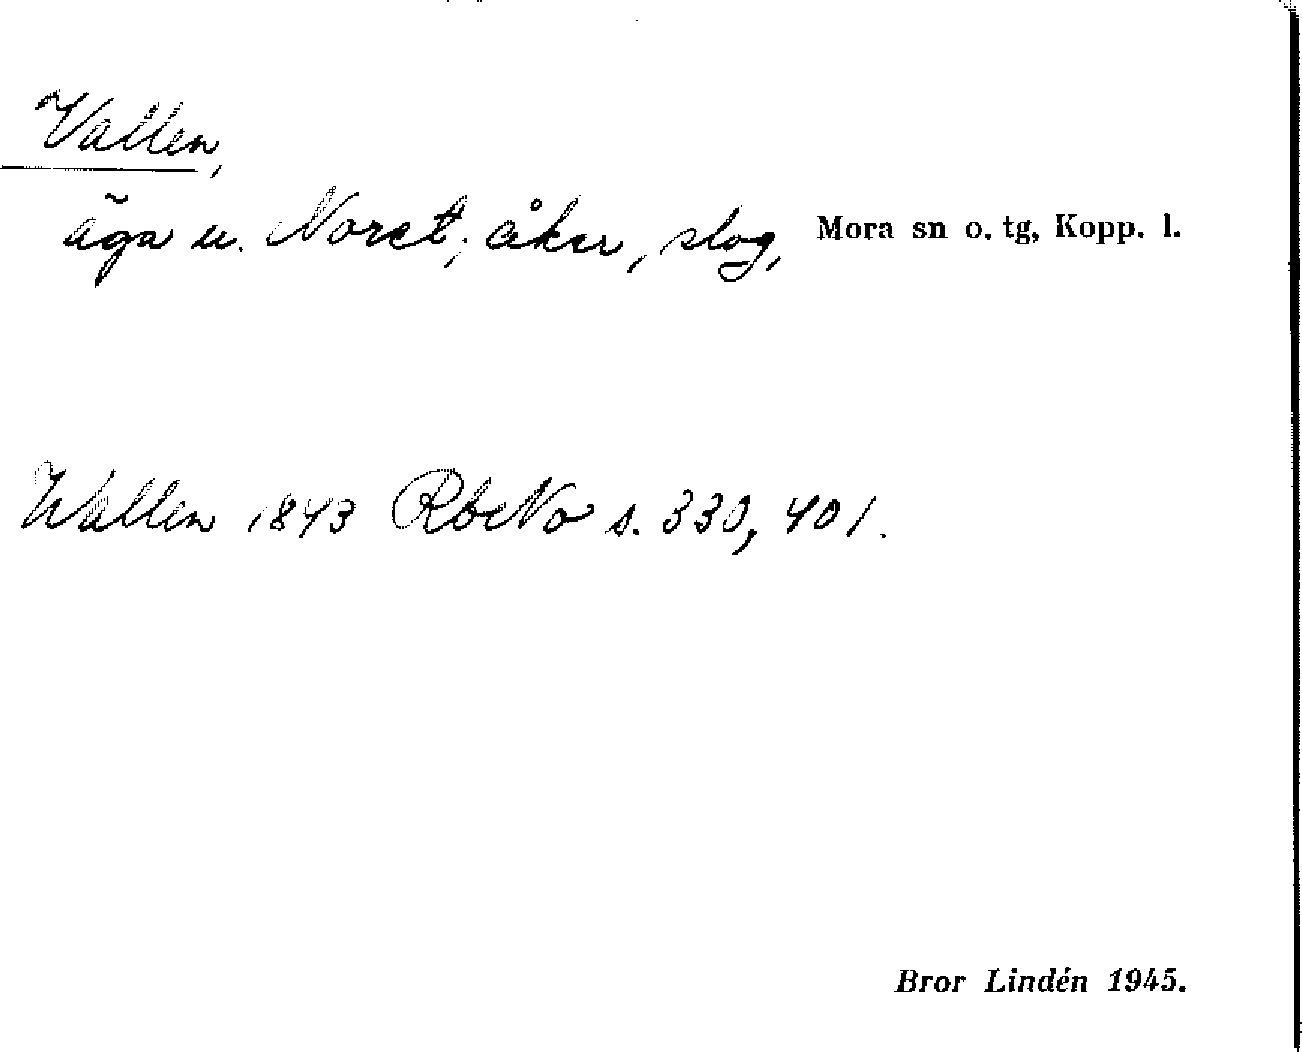 Vallen,
äga u. Noret; åker, slog, Mora sn o. tg, Kopp. l.
Wallen 1843 RbcNo s. 330, 401.
Bror Lindén 1945.